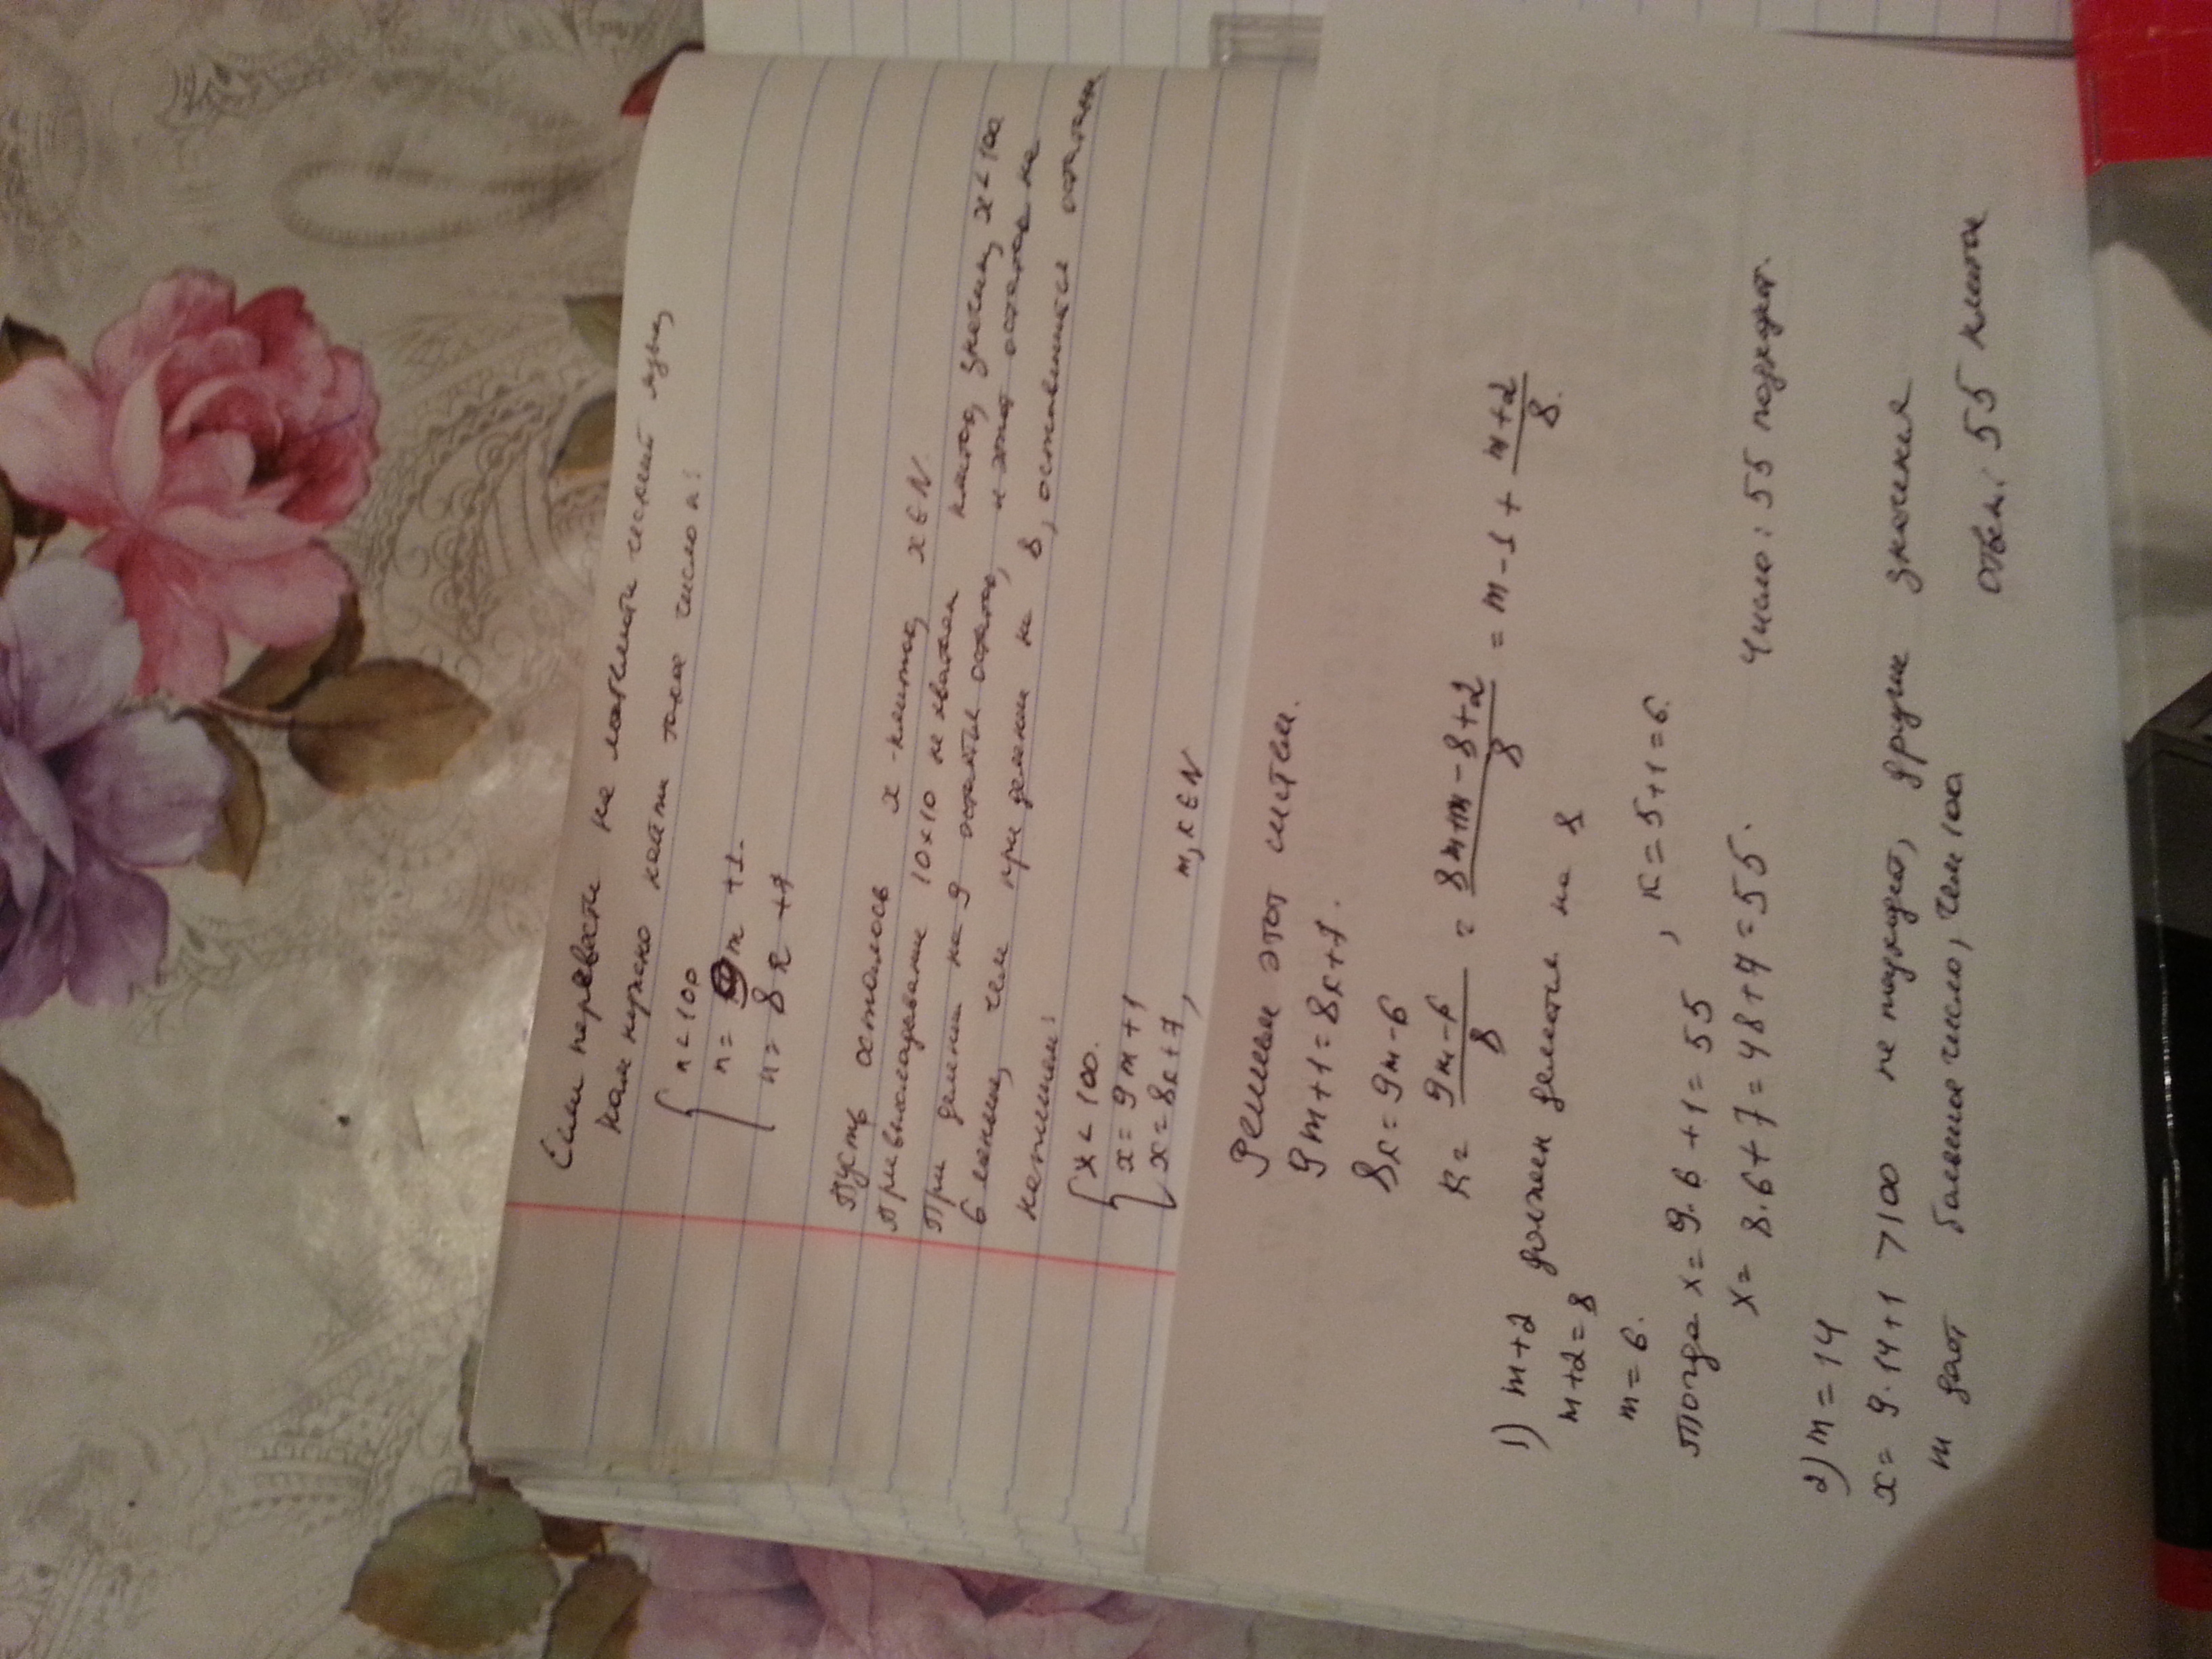 Если перевести на математический язык,
нам нужно найти такое число n:
n < 100
n = 9m + 1.
n = 8k + 7
Пусть осталось x - плиток, x ∈ N.
При выкладывании 10×10 не хватает плиток, значит, x < 100
При делении на 9 остаток, и этот остаток на
6 меньше, чем при делении на 8, оставшиеся остатки
напишем:
x < 100.
x = 9m + 1
x = 8k + 7, m, k ∈ N
Решим этот систем.
9m + 1 = 8k + 7.
8k = 9m - 6
k = 9m-6/8 = 8m+m-8+2/8 = m - 1 + m+2/8.
1) m+2 должен делится на 8
m+2 = 8
m = 6.
Тогда x = 9·6 + 1 = 55, k = 5+1 = 6.
x = 8·6 + 7 = 48 + 7 = 55.
Число: 55 подходит.
2) m = 14
x = 9·14+1 > 100 не подходит, другие значения
m дают большое число, чем 100
Ответ: 55 плиток